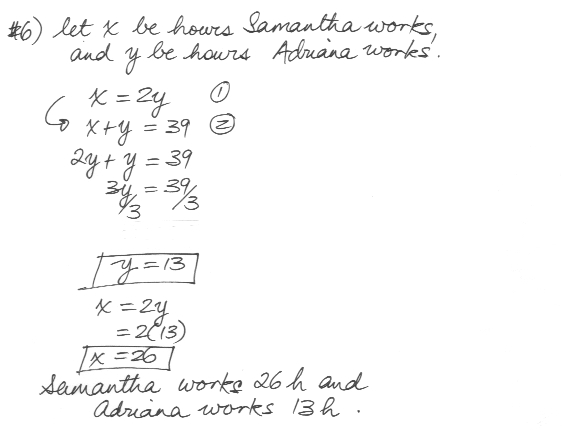 #6) let x be hours Samantha works,
and y be hours Adriana works.
x = 2y ①
x+y = 39 ②
2y + y = 39
3y/3 = 39/3
y = 13
x = 2y
= 2(13)
x = 26
Samantha works 26 h and
Adriana works 13 h.